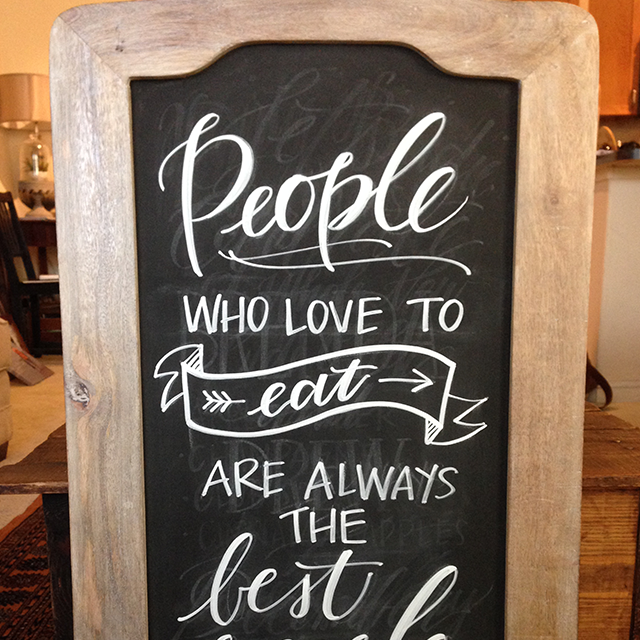 People
WHO LOVE TO
eat
ARE ALWAYS
THE
best